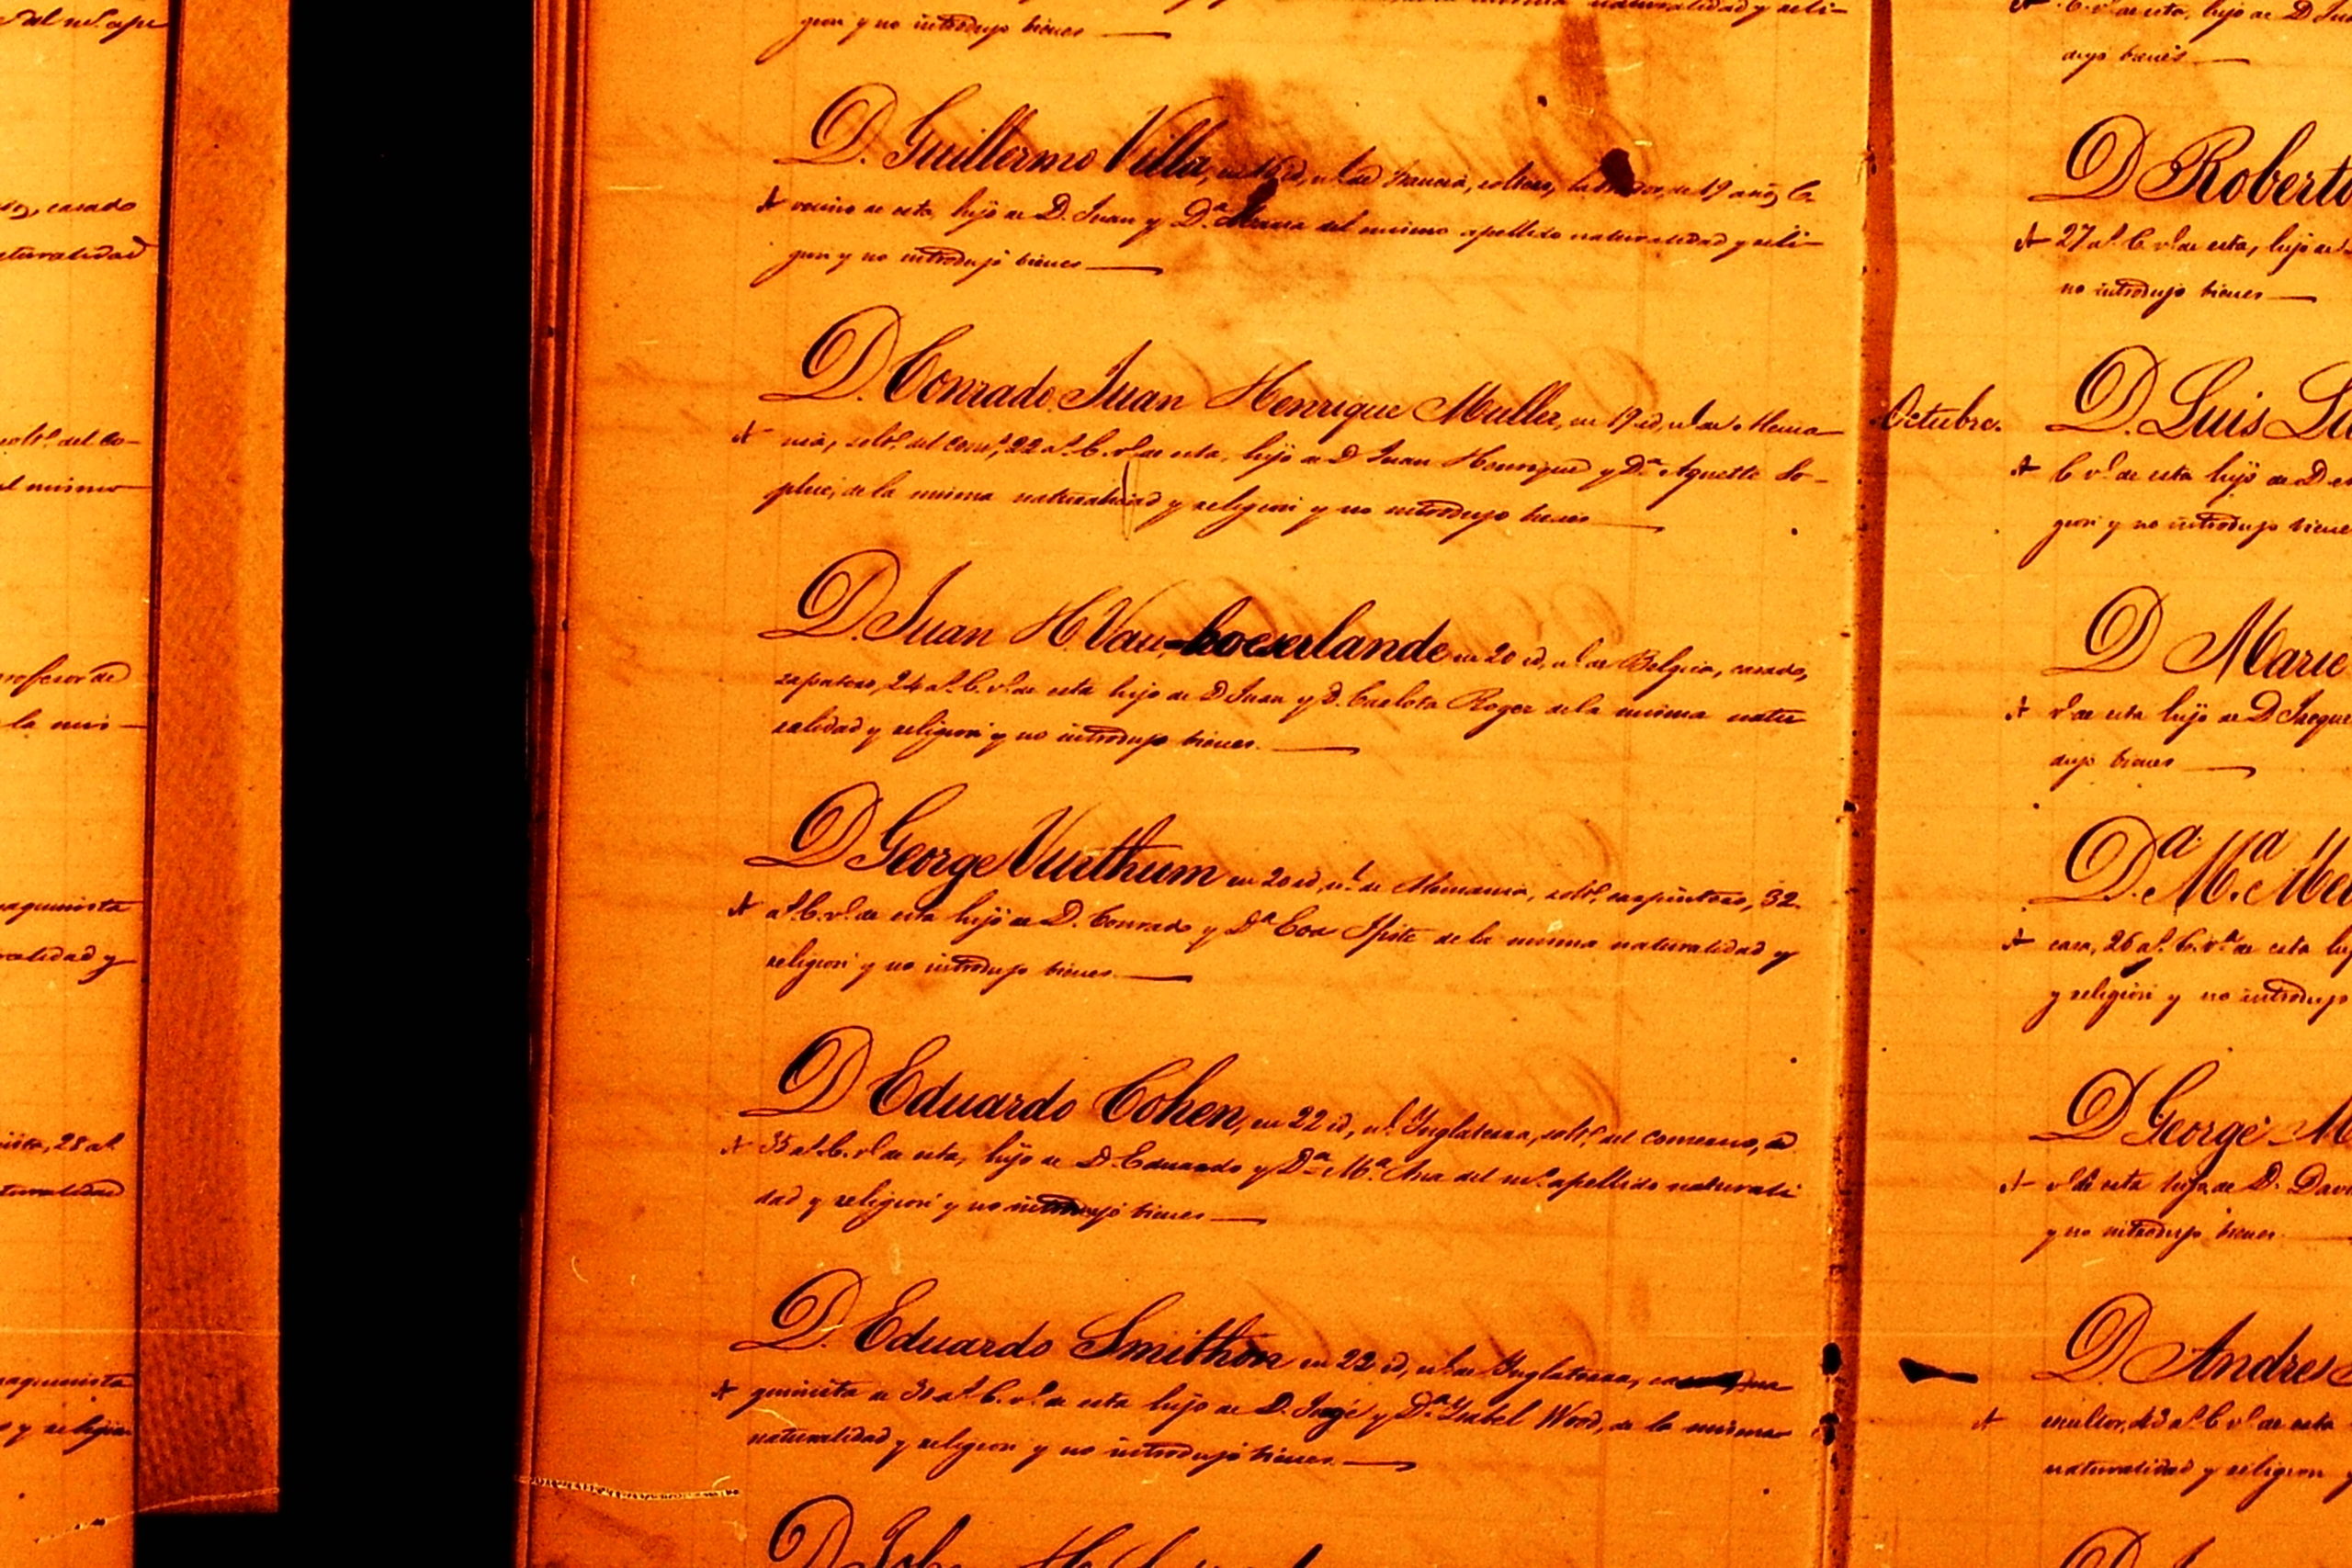 del ms. ape
casado
naturalidad
solto. del Co-
mismo
profesor de
la mis-
maquinista
naturalidad y
28 as.
naturalidad
maquinista
y religion
naturalidad y reli-
gion y no introdujo bienes
D. Guillermo Villa, en id, nl. de Francia, soltero, de 19 años C.
A vecino de esta, hijo de D. Juan y Da. del mismo apellido naturalidad y reli-
gion y no introdujo bienes
D. Conrado Juan Henrique Muller, en 19 id, nl. de Alema-
A nia, solto. del Como. 22 as. C. vo. de esta, hijo de D. Juan Henrique y Da. Agnette So-
phie, de la misma naturalidad y religion y no introdujo bienes
D. Juan H. Van-boeserlande en 20 id, nl. de Belgica, casado,
zapatero, 24 as. C. vo. de esta hijo de D. Juan y D. Carlota Roger de la misma natu-
ralidad y religion y no introdujo bienes.
D George Vurthum en 20 id, nl. de Alemania, solto. carpintero, 32
A as. C. vo. de esta hijo de D. Conrado y Da. Eva Spite de la misma naturalidad y
religion y no introdujo bienes.
D Eduardo Cohen, en 22 id, nl. Inglaterra, solto. del comercio, de
A 35 as. C. vo. de esta, hijo de D. Eduardo y Da. Ma. Ana del mo. apellido naturali
dad y religion y no introdujo bienes
D. Eduardo Smithon en 22 id, nl. de Inglaterra, ma
A quinista de 30 as. C. vo. de esta hijo de D. Jorje y Da. Ysabel Wood, de la misma
naturalidad y religion y no introdujo bienes.
D John H.
C. vo. de esta, hijo de D. Jua
dujo bienes
D Roberto
A 27 as. C. vo. de esta, hijo de
no introdujo bienes
Octubre. D. Luis
A C. vo. de esta hijo de D.
gion y no introdujo biene
D Marie
A vo. de esta hijo de D Jacque
dujo bienes
Da. Ma. Me
A casa, 26 as. C. va. de esta hij
y religion y no introdujo
D George M
A vo. de esta hijo de D. Davi
y no introdujo bienes
D. Andres
A 43 as. C. vo. de esta
naturalidad y religion y
D